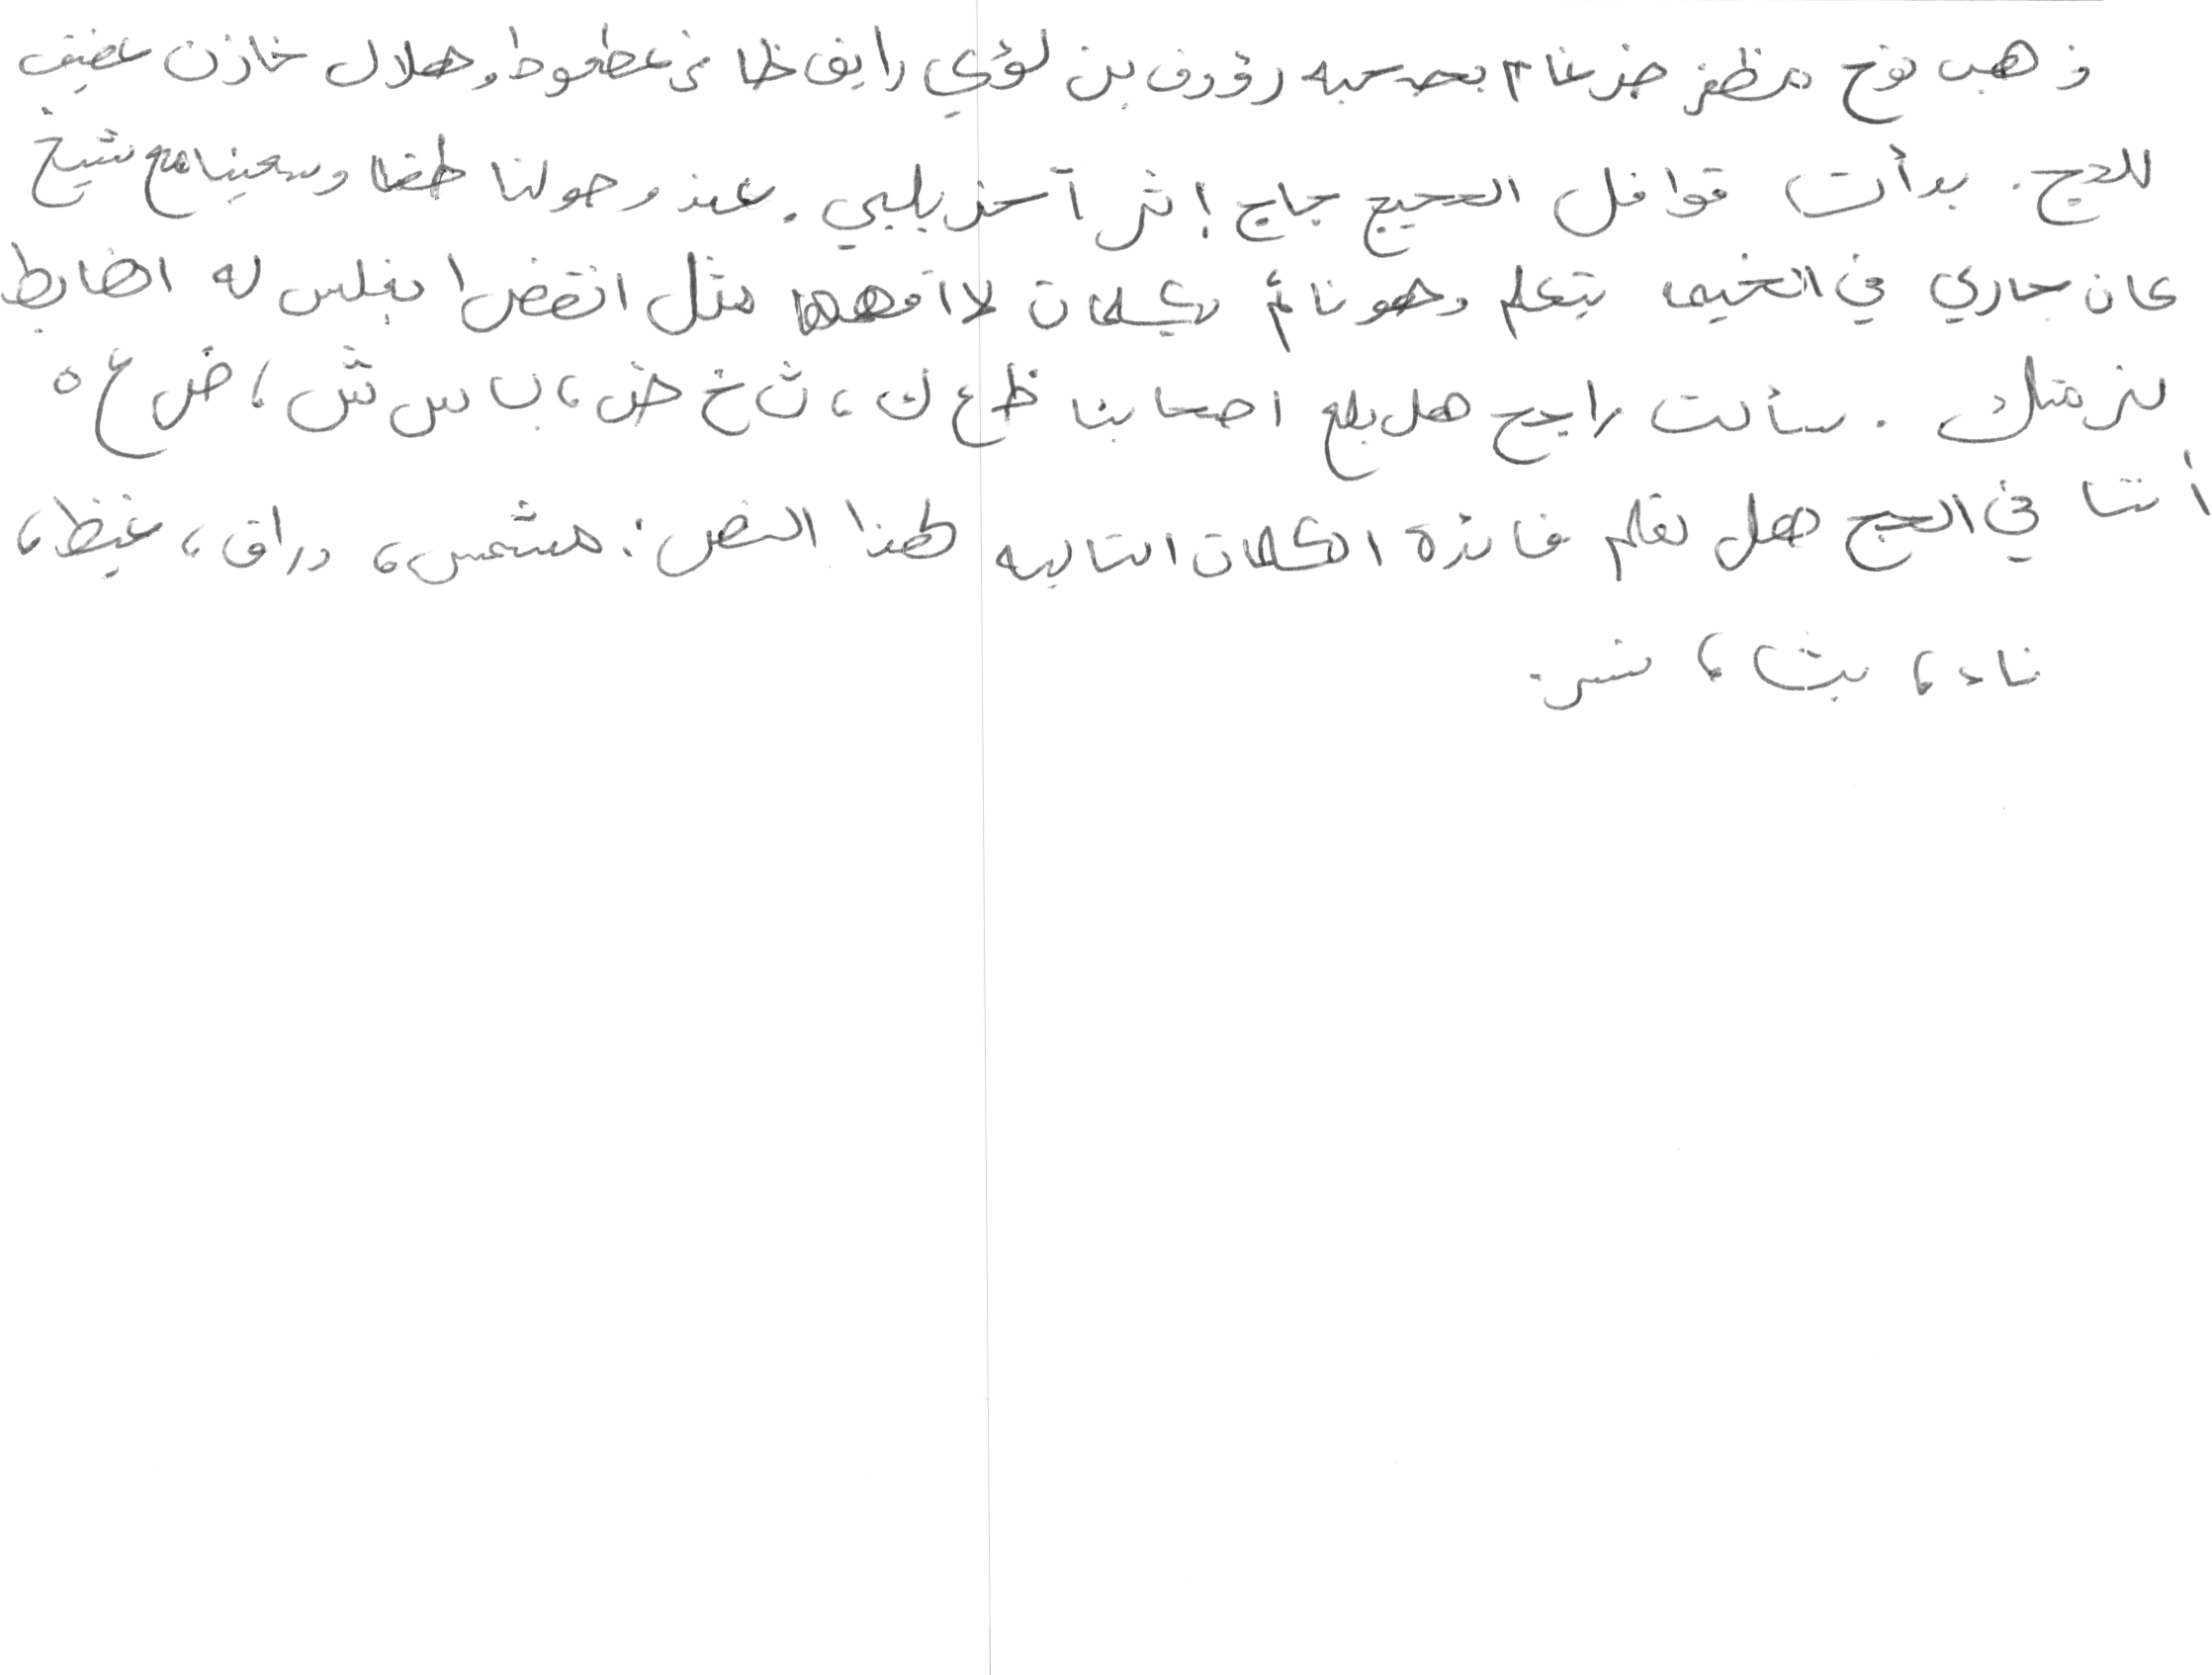 ذهب نوح مظفر ضرغام بصحبه رؤوف بن لؤي رايق ظافر عطعوط وهلال خازن عفيف
للحج. بدأت قوافل الحجيج حاج إثر آخر يلبي. عند وصولنا طفنا وسعينا مع شيخ
كان جاري في الخيمه يتكلم وهو نائم بكلمات لا افهمها مثل انقض ابغلس له اضابط
لئز مثلك. سألت راجح هل بلغ اصحابنا ظ ع ك، ث خ ض، ب س ش، ض غ ه
أننا في الحج هل تعلم فائدة الكلمات التاليه لهذا النص: مشمس، دراق، غيظ،
ناء، بث، نسر.